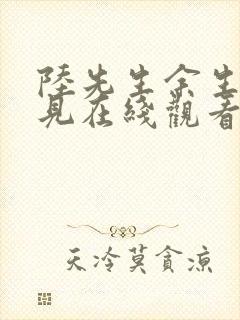 陸先生余生
見在綫觀看
天冷莫貪涼